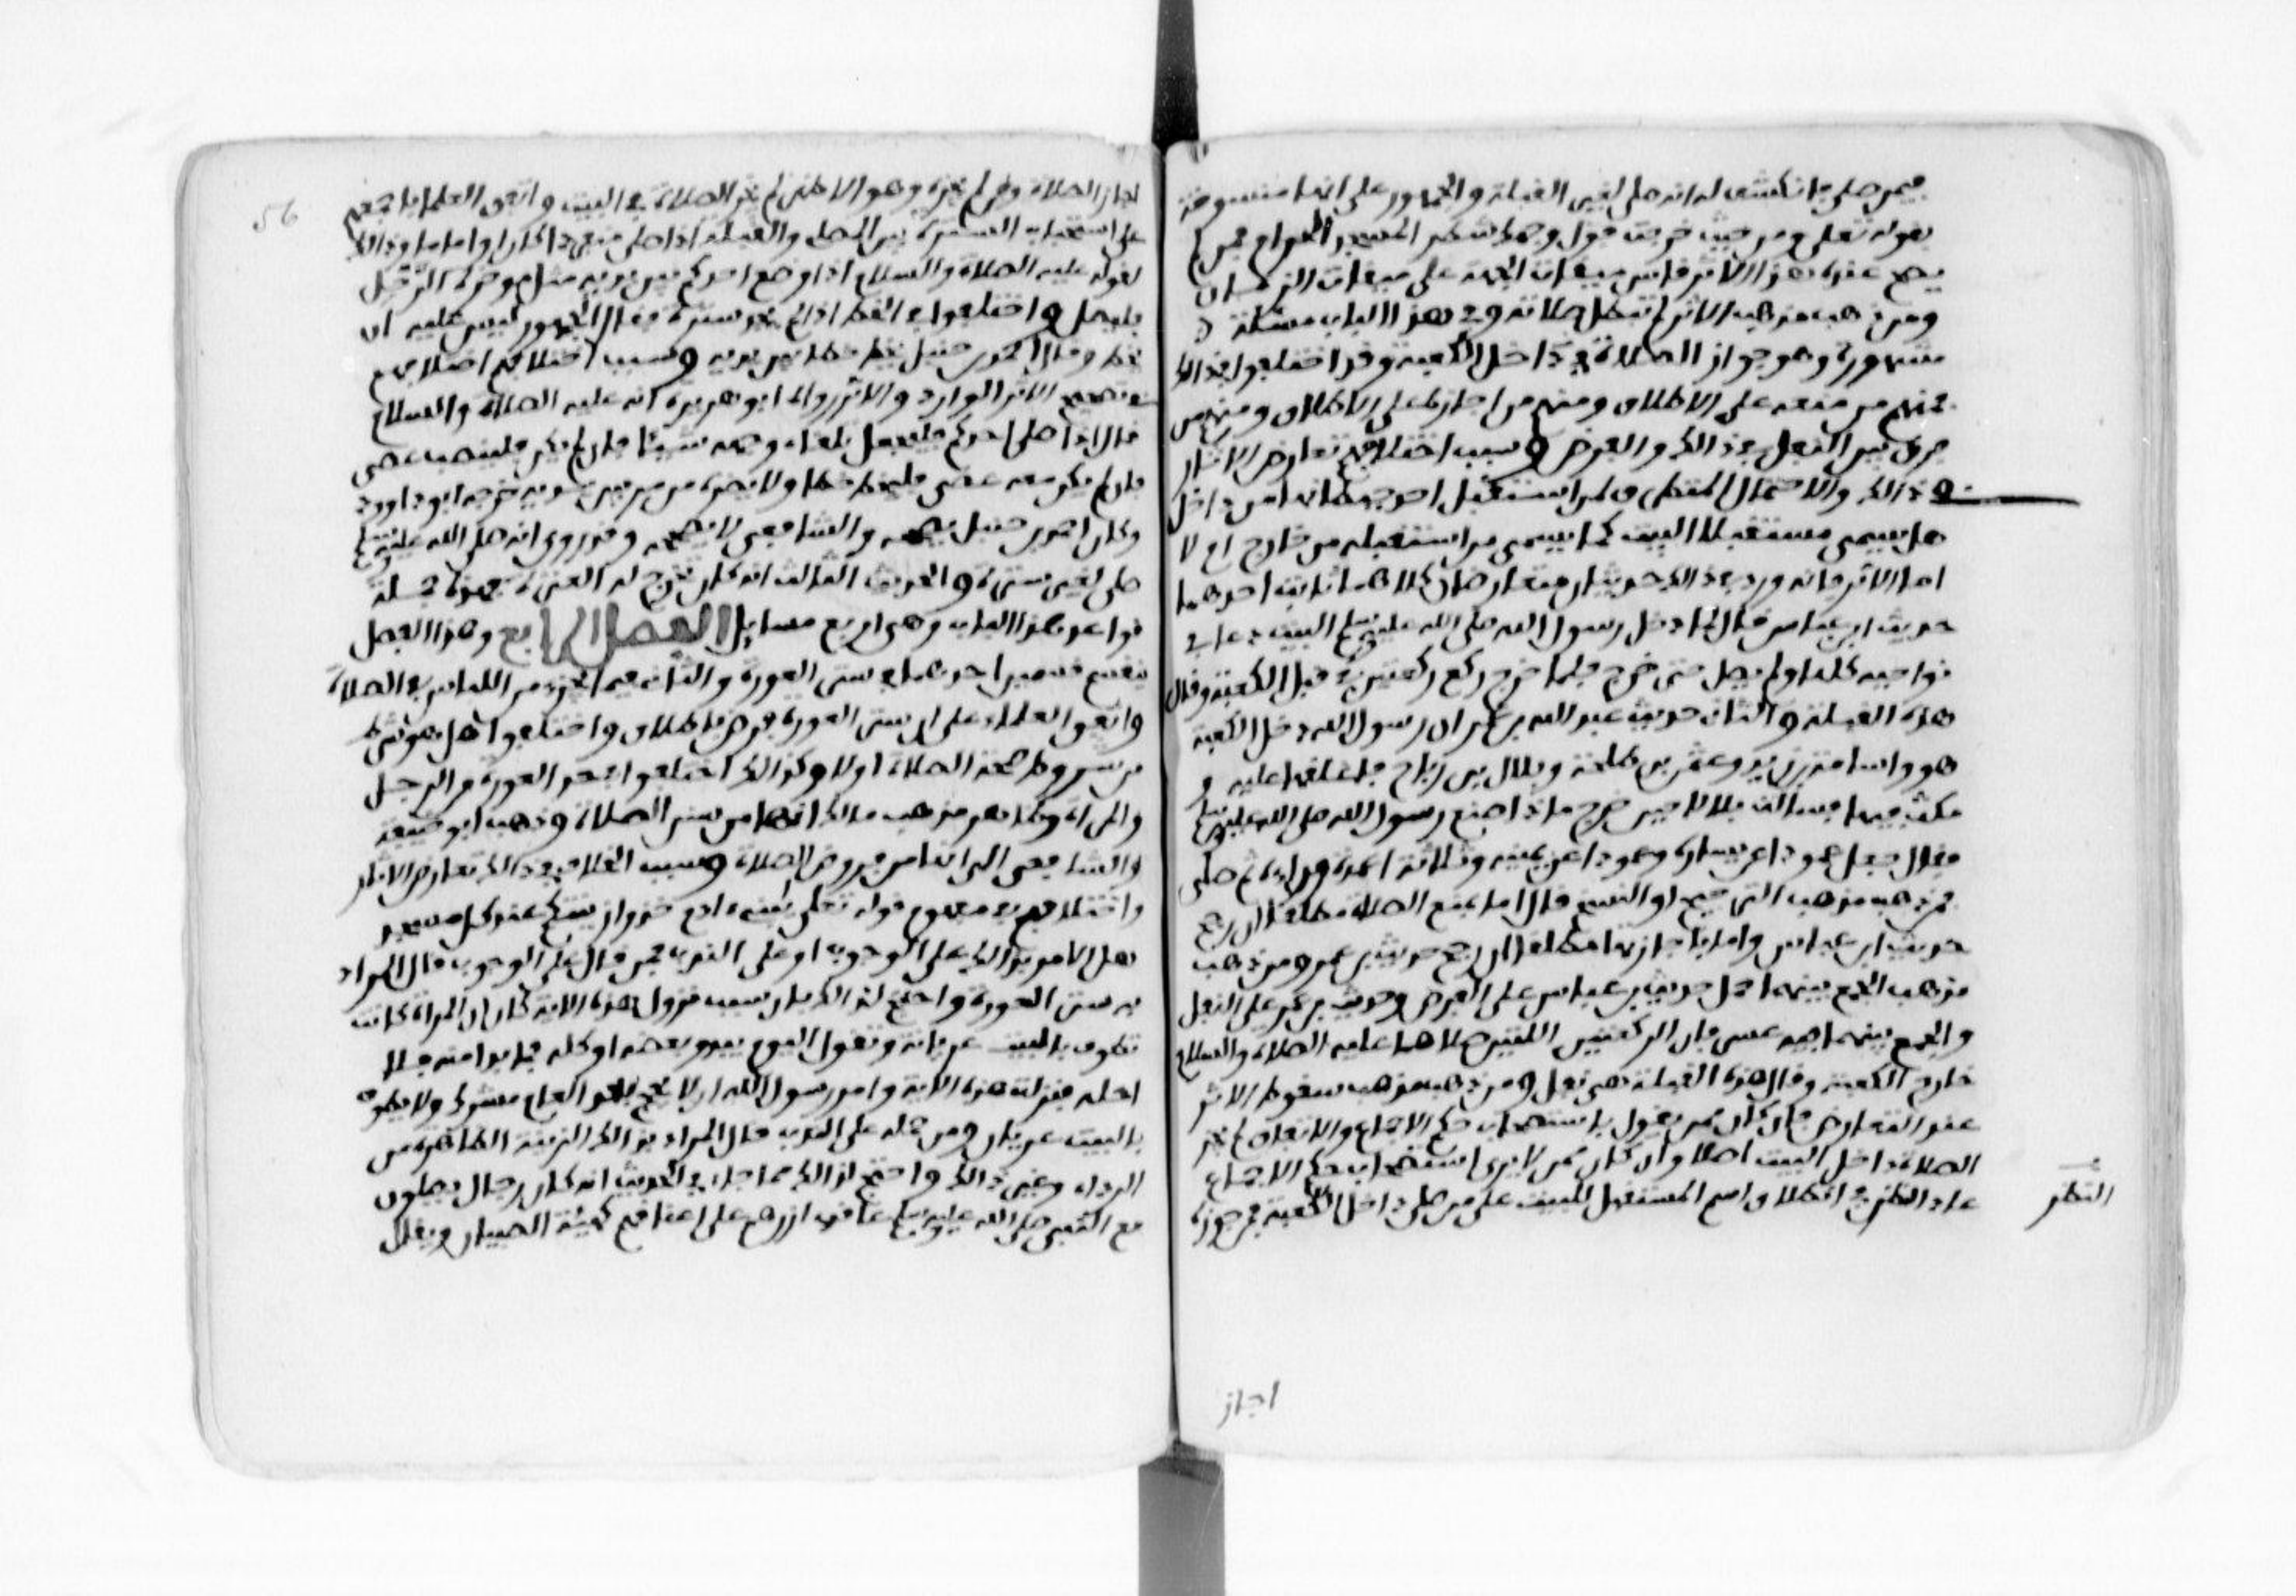 فيمن صلى فانكشف له انه صلى لغير القبلة والجمهور على انها منسوخة
بقوله تعلى ومن حيث خرجت فول وجهك شطر المسجد الحرام فمن لم
يصح عنده هذا الاثر قاس ميقات الجهة على ميقات الزمان
ومن ذهب مذهب الاثر لم تبطل صلاته وفي هذا الباب مسئلة
مشهورة وهو جواز الصلاة في داخل الكعبة وقد اختلفوا في ذالك
فمنهم من منعه على الاطلاق ومنهم من اجازه على الاطلاق ومنهم من
فرق بين النفل في ذالك والفرض وسبب اختلافهم تعارض الاثار
في ذالك والاحتمال المتطرق لمن استقبل احد حيطانها من داخل
هل يسمى مستقبلا للبيت كما يسمى من استقبله من خارج ام لا
اما الاثر فانه ورد في ذالك حديثان متعارضان كلاهما ثابت احدهما
حديث ابن عباس قال لما دخل رسول الله صلى الله عليه وسلم البيت دعا في
نواحيه كلها ولم يصل حتى خرج فلما خرج ركع ركعتين في قبل الكعبة وقال
هذه القبلة والثاني حديث عبد الله بن عمر ان رسول الله دخل الكعبة
هو واسامة بن زيد وعثمن بن طلحة وبلال بن رباح فاغلقها عليه و
مكث فيها فسالت بلالا حين خرج ماذا صنع رسول الله صلى الله عليه وسلم
فقال جعل عمودا عن يساره وعمودا عن يمينه وثلاثة اعمدة وراءه ثم صلى
فمن ذهب مذهب الترجيح او النسخ قال اما بمنع الصلاة مطلقا ان رجح
حديث ابن عباس واما باجازتها مطلقا ان رجح حديث بن عمر ومن ذهب
مذهب الجمع بينهما حمل حديث بن عباس على الفرض وحديث بن عمر على النفل
والجمع بينهما فيه عسر فان الركعتين اللتين صلاهما عليه الصلاة والسلام
خارج الكعبة وقال هذه القبلة هي نفل ومن ذهب مذهب سقوط الاثر
عند التعارض فان كان ممن يقول باستصحاب حكم الاجماع والاتفاق لم يجز
الصلاة داخل البيت اصلا وان كان ممن لا يرى استصحاب حكم الاجماع
عاد النظر في انطلاق اسم المستقبل للبيت على من صلى داخل الكعبة فمن جوزه
النظر
اجاز
56
اجاز الصلاة ومن لم يجزه وهو الاظهر لم يجز الصلاة في البيت واتفق العلماء باجمعهم
على استحباب السترة بين المصلي والقبلة اذا صلى منفردا كان او اماما وذالك
لقوله عليه الصلاة والسلام اذا وضع احدكم بين يديه مثل موخرة الرحل
فليصل واختلفوا في الخط اذا لم يجد سترة فقال الجمهور ليس عليه ان
يخط وقال احمد بن حنبل يخط خطا بين يديه وسبب اختلافهم اختلافهم
في تصحيح الاثر الوارد والاثر رواه ابو هريرة انه عليه الصلاة والسلام
قال اذا صلى احدكم فليجعل تلقاء وجهه شيئا فان لم يكن فلينصب عصى
فان لم يكن معه عصى فليخط خطا ولا يضره من مر بين يديه خرجه ابو داوود
وكان احمد بن حنبل يصححه والشافعي لا يصححه وقد روي انه صلى الله عليه وسلم
صلى لغير سترة والحديث الثابت انه كان يخرج له العنزة فهذه جملة
قواعد هذا الباب وهي اربع مسايل الفصل الرابع وهذا الفصل
ينقسم قسمين احدهما في ستر العورة والثاني فيما يجزي من اللباس في الصلاة
واتفق العلماء على ان ستر العورة فرض باطلاق واختلفوا هل هو شرط
من شروط صحة الصلاة ام لا وكذالك اختلفوا في حد العورة من الرجل
والمراة وظاهر مذهب مالك انها من سنن الصلاة وذهب ابو حنيفة
والشافعي الى انها من فروض الصلاة وسبب الخلاف في ذالك تعارض الاثار
واختلافهم في مفهوم قوله تعلى يبنيء ادم خذوا زينتكم عند كل مسجد
هل الامر بذالك على الوجوب او على الندب فمن قال على الوجوب قال المراد
به ستر العورة واحتج لذالك بان سبب نزول هذه الاية كان ان المراة كانت
تطوف بالبيت عريانة وتقول اليوم يبدو بعضه او كله فما بدا منه فلا
احله فنزلت هذه الاية وامر رسول الله ان لا يحج بعد العام مشرك ولا يطوف
بالبيت عريان ومن حمله على الندب قال المراد بذالك الزينة الظاهرة من
الرداء وغير ذالك واحتج لذالك بما جاء في الحديث انه كان رجال يصلون
مع النبي صلى الله عليه وسلم عاقدي ازرهم على اعناقهم كهيئة الصبيان ويقال